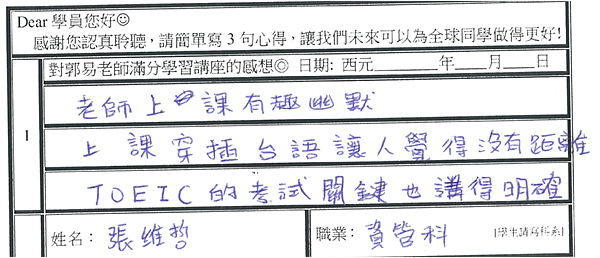 Dear 學員您好☺
感謝您認真聆聽，請簡單寫 3 句心得，讓我們未來可以為全球同學做得更好!
對郭易老師滿分學習講座的感想◎ 日期: 西元____年____月____日
1
老師上課有趣幽默
上課穿插台語讓人覺得沒有距離
TOEIC的考試關鍵也講得明確
姓名：張維哲
職業：資管科 [學生請寫科系]